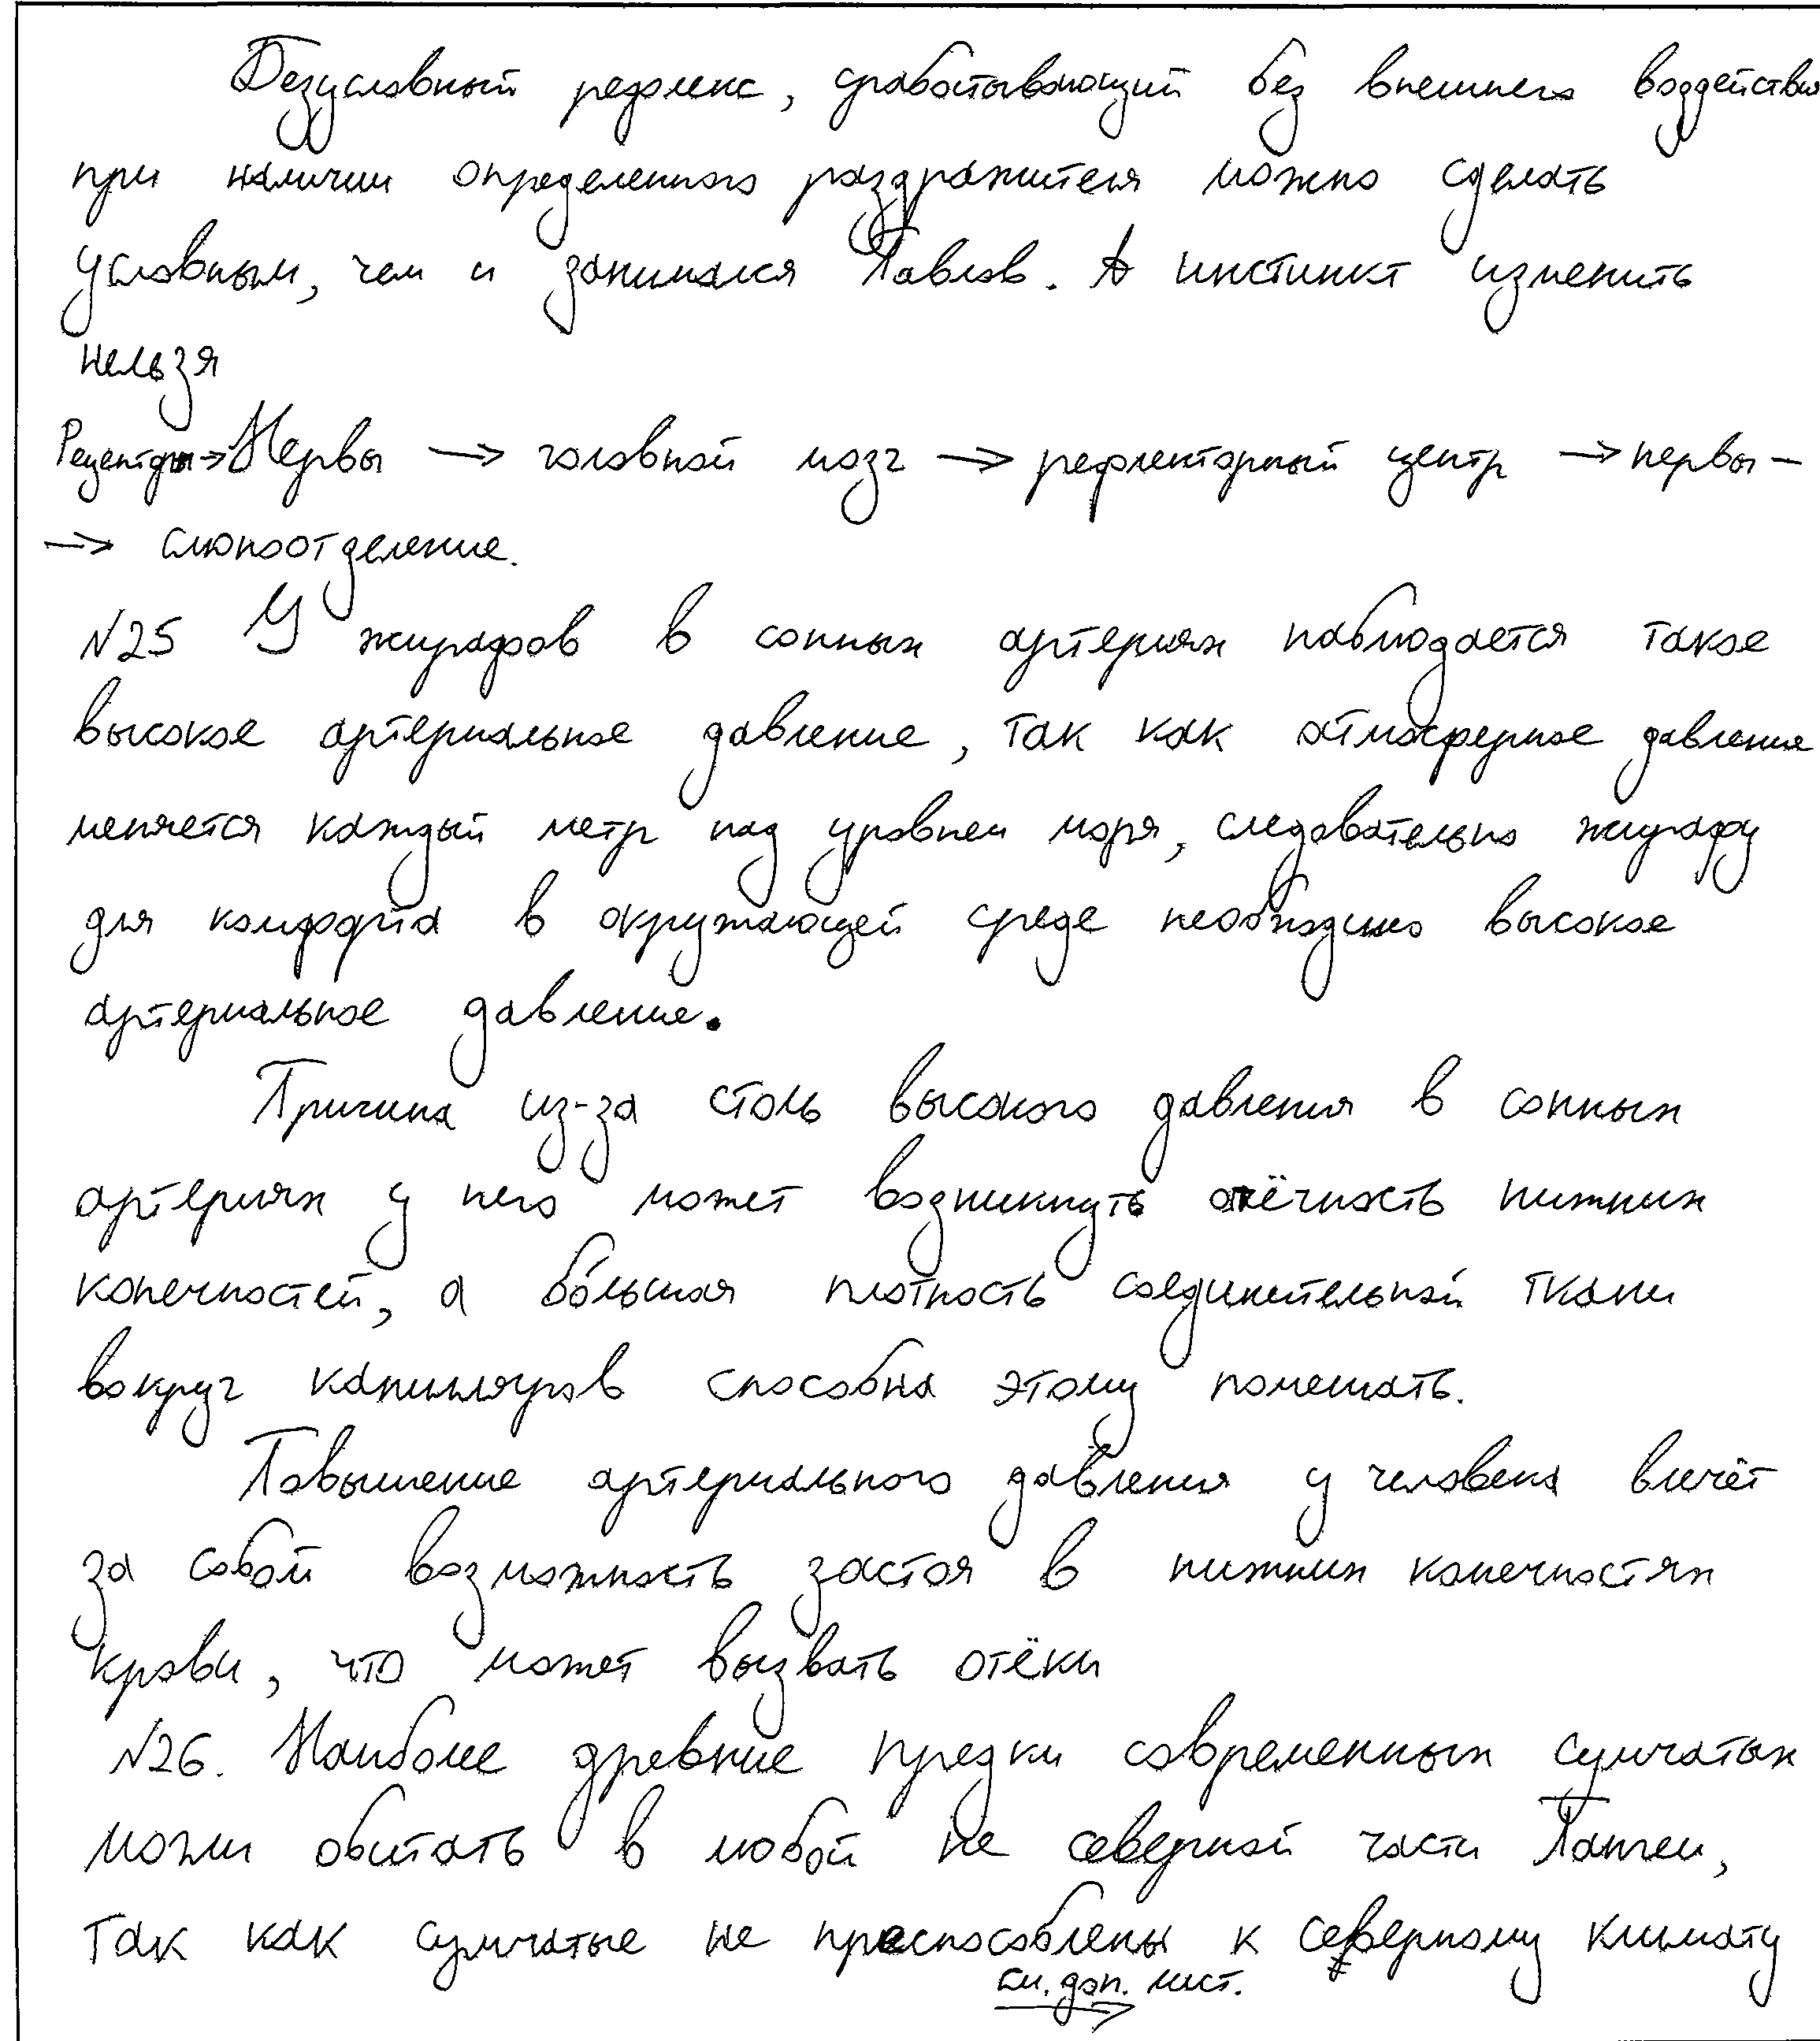 Безусловный рефлекс, срабатывающий без внешнего воздействия
при наличии определенного раздражителя можно сделать
условным, чем и занимался Павлов. А инстинкт изменить
нельзя
Рецепторы → Нервы → головной мозг → рефлекторный центр → нервы –
→ слюноотделение.
№25 У жирафов в сонных артериях наблюдается такое
высокое артериальное давление, так как атмосферное давление
меняется каждый метр над уровнем моря, следовательно жирафу
для комфорта в окружающей среде необходимо высокое
артериальное давление.
Причина из-за столь высокого давления в сонных
артериях у него может возникнуть отёчность нижних
конечностей, а бо́льшая плотность соединительной ткани
вокруг капилляров способна этому помешать.
Повышение артериального давления у человека влечёт
за собой возможность застоя в нижних конечностях
крови, что может вызвать отёки
№26. Наиболее древние предки современных сумчатых
могли обитать в любой не северной части Пангеи,
так как сумчатые не приспособлены к северному климату
см. доп. лист.